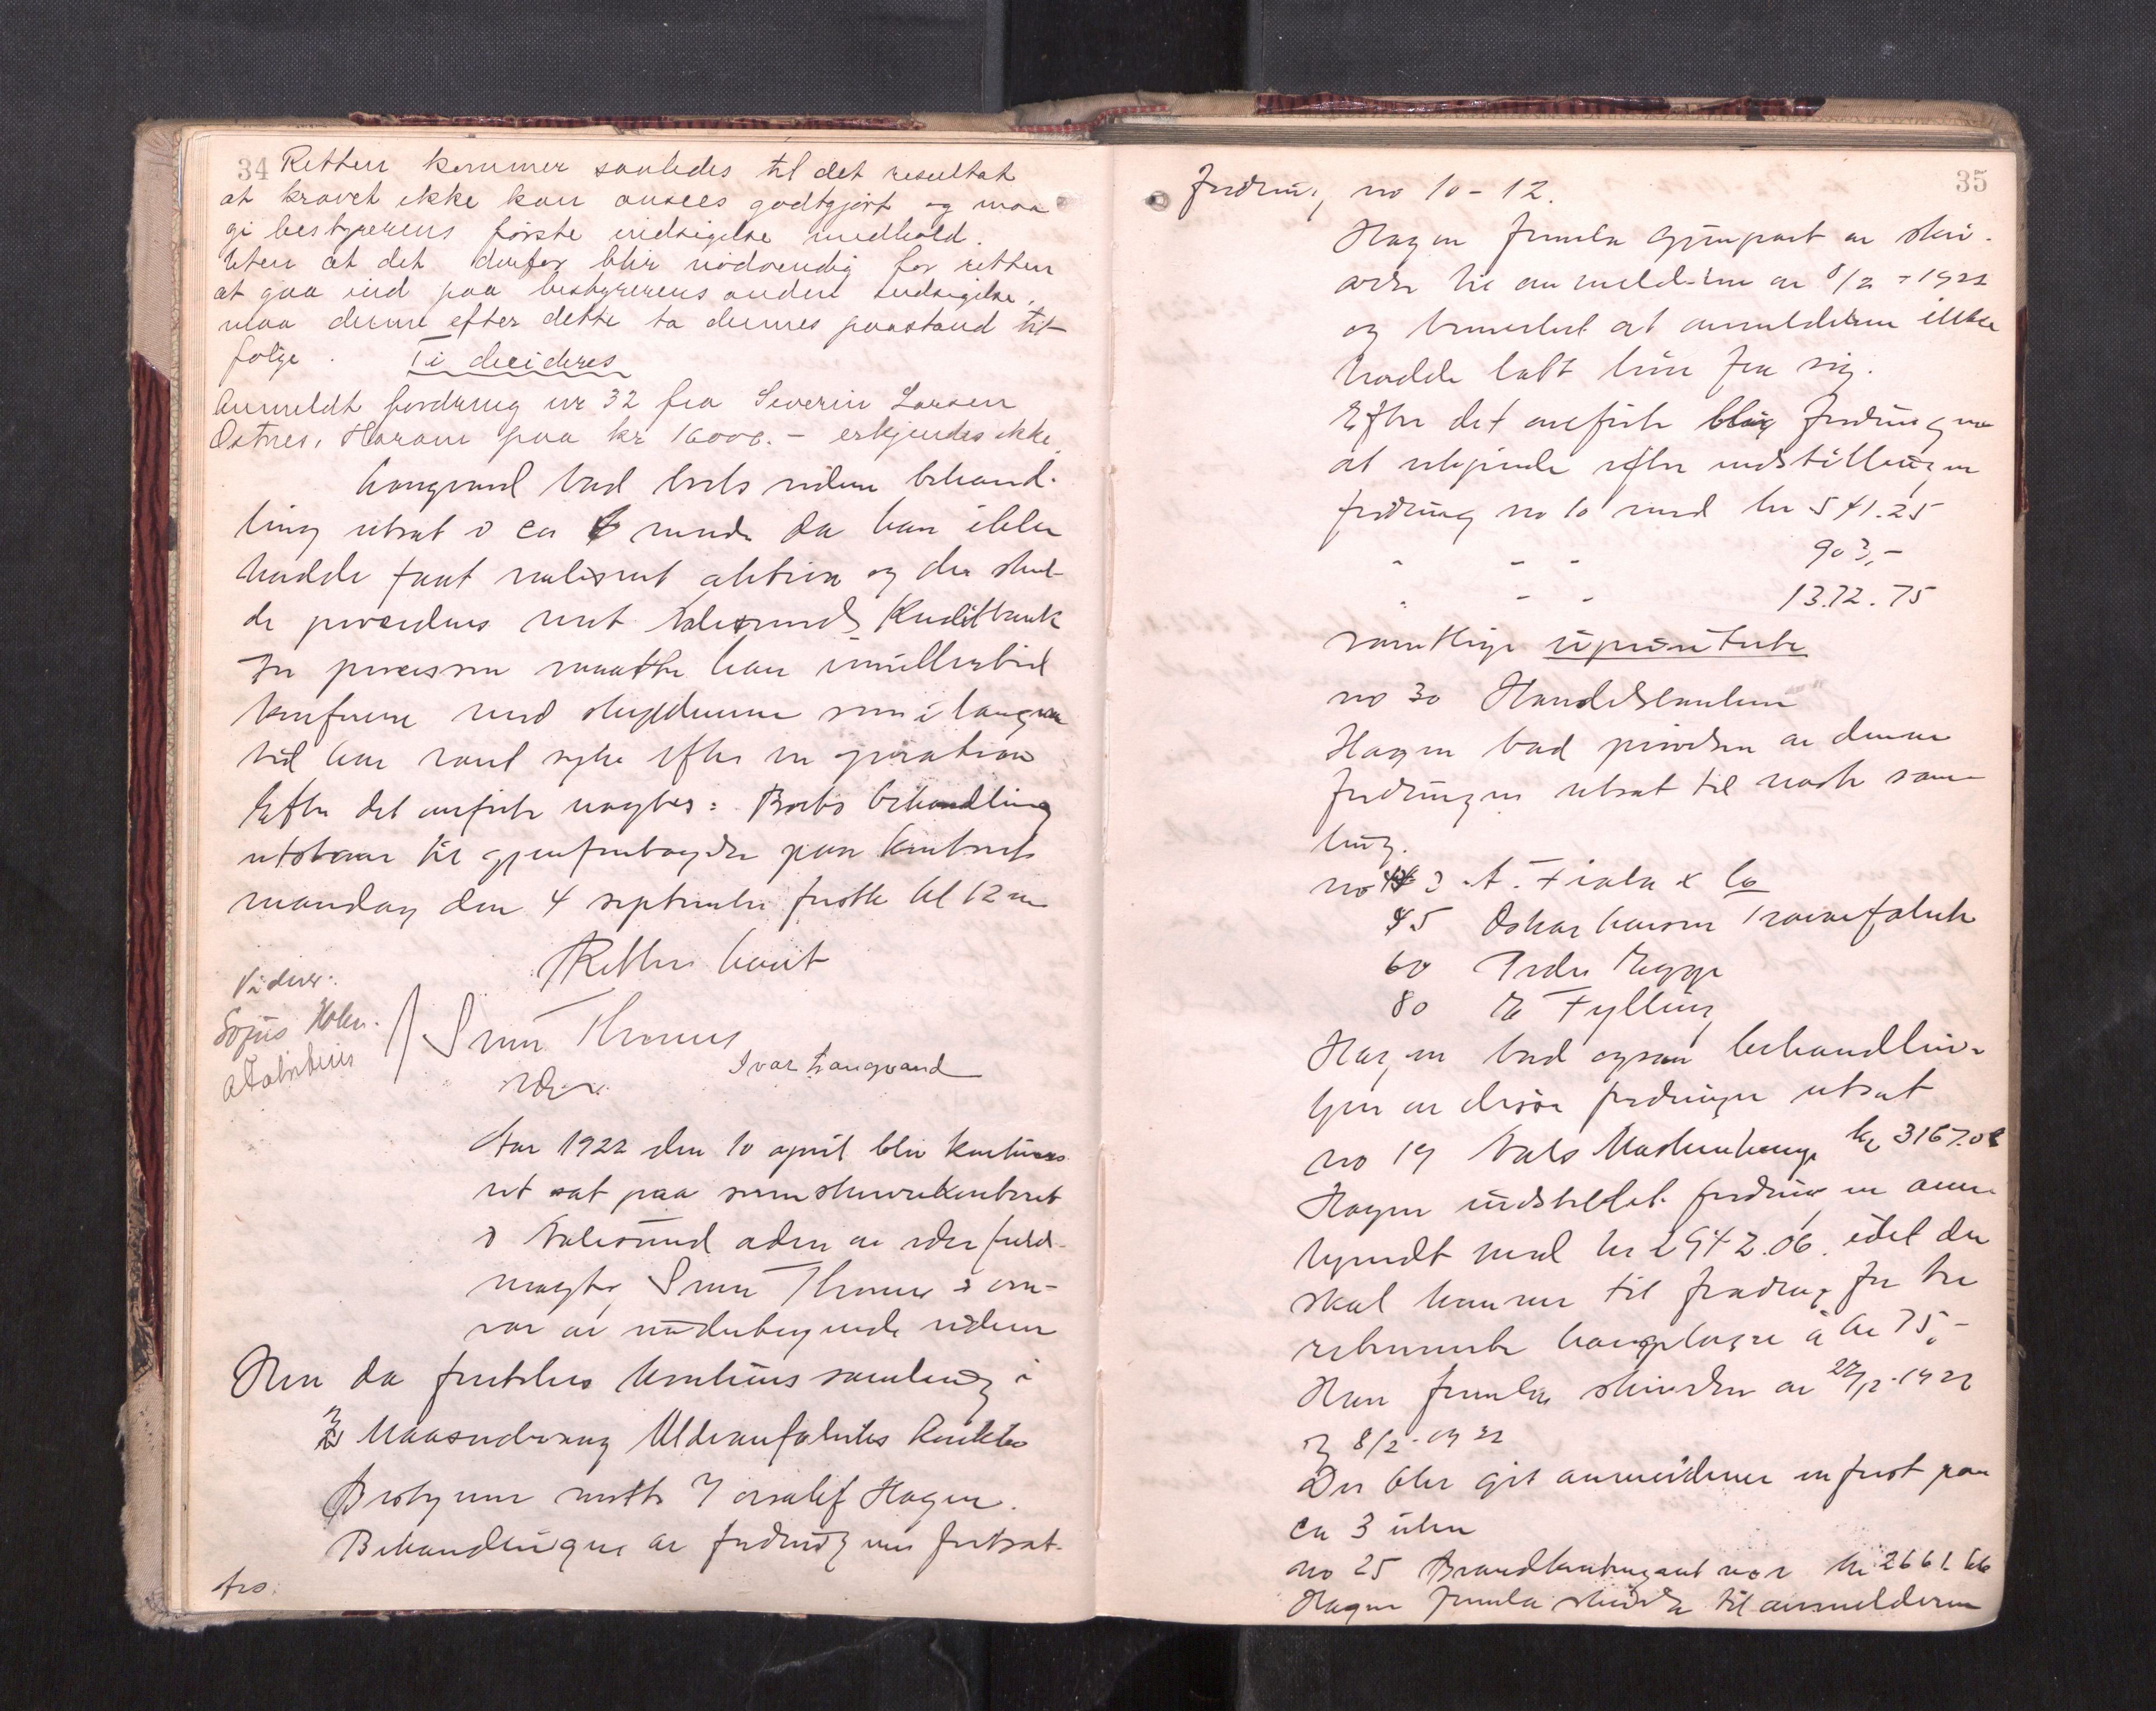 34 Retten kommer saaledes til det resultat
at kravet ikke kan ansees godtgjort og maa
gi bestyrerens første indsigelse medhold.
Uten at det derfor blir nødvendig for retten
at gaa ind paa bestyrerens anden indsigelse,
maa denne efter dette ta dennes paastand til-
følge. Ti decideres
Anmeldt fordring nr 32 fra Severin Larsen
Østnes, Haram paa kr 16000.- erkjendes ikke.
Langvand bad boets videre behand-
ling utsat i ca mnd. da han ikke
hadde faat realisert aktiva og der skul-
de procederes mot Aalesunds Kreditbank
For processen maatte han imidlertid
konferere med skyldneren som i længere
tid har vært syk efter en operation
Efter det anførte vagtes: Boets behandling
utstaar til gjenforetagelse paa kontoret
mandag den 4 september førstk kl 12 m
Retten hævet
Vidner:
Sverre Thomes
Ivar Langvand
Aar 1922 den 10 april blev konkurs
ret sat paa sorenskriverkontoret
i Aalesund adm av edsv fuld-
mægtig Sverre Thomes i over-
vær av undertegnede vidner
Hvor da foretokes konkurssamling i
Maasudvaag Uldvarefabriks konkbo
Bestyrer mötte O.r.sakf Hagen.
Behandlingen av fordringene fortsat.
35
Fordring no 10 - 12.
Hagen fremla gjenpart av skri-
velse til anmelderne av 8/2 - 1922
og bemerket at anmelderne ikke
hadde latt høre fra sig.
Efter det anførte blir fordringene
at erkjende efter indstillingen
fordring no 10 med kr 541.25
" - - 903,-
" - - 1372.75
samtlige uprioriterte
no 30 Handelsbanken
Hagen bad prøvelsen av denne
fordringen utsat til næste sam-
ling.
no 43 A. Fiala & Co
45 Oskar Trævarefabrik
60 Peder Rygge
80 E Fylling
Hagen bad ogsaa behandlin-
gen av disse fordringer utsat
no 19 Aals kr 3167.08
Hagen indstillet fordringen aner-
kjendt med kr 2942.06. idet der
skal komme til fradrag for tre
returnerte à kr 75,-
Han fremla skrivelser av 22/12-1922
og 8/2-1922
Der blir git anmelderen en frist paa
ca 3 uker
no 25 kr 2661.66
Hagen fremla skrivelse til anmelderen